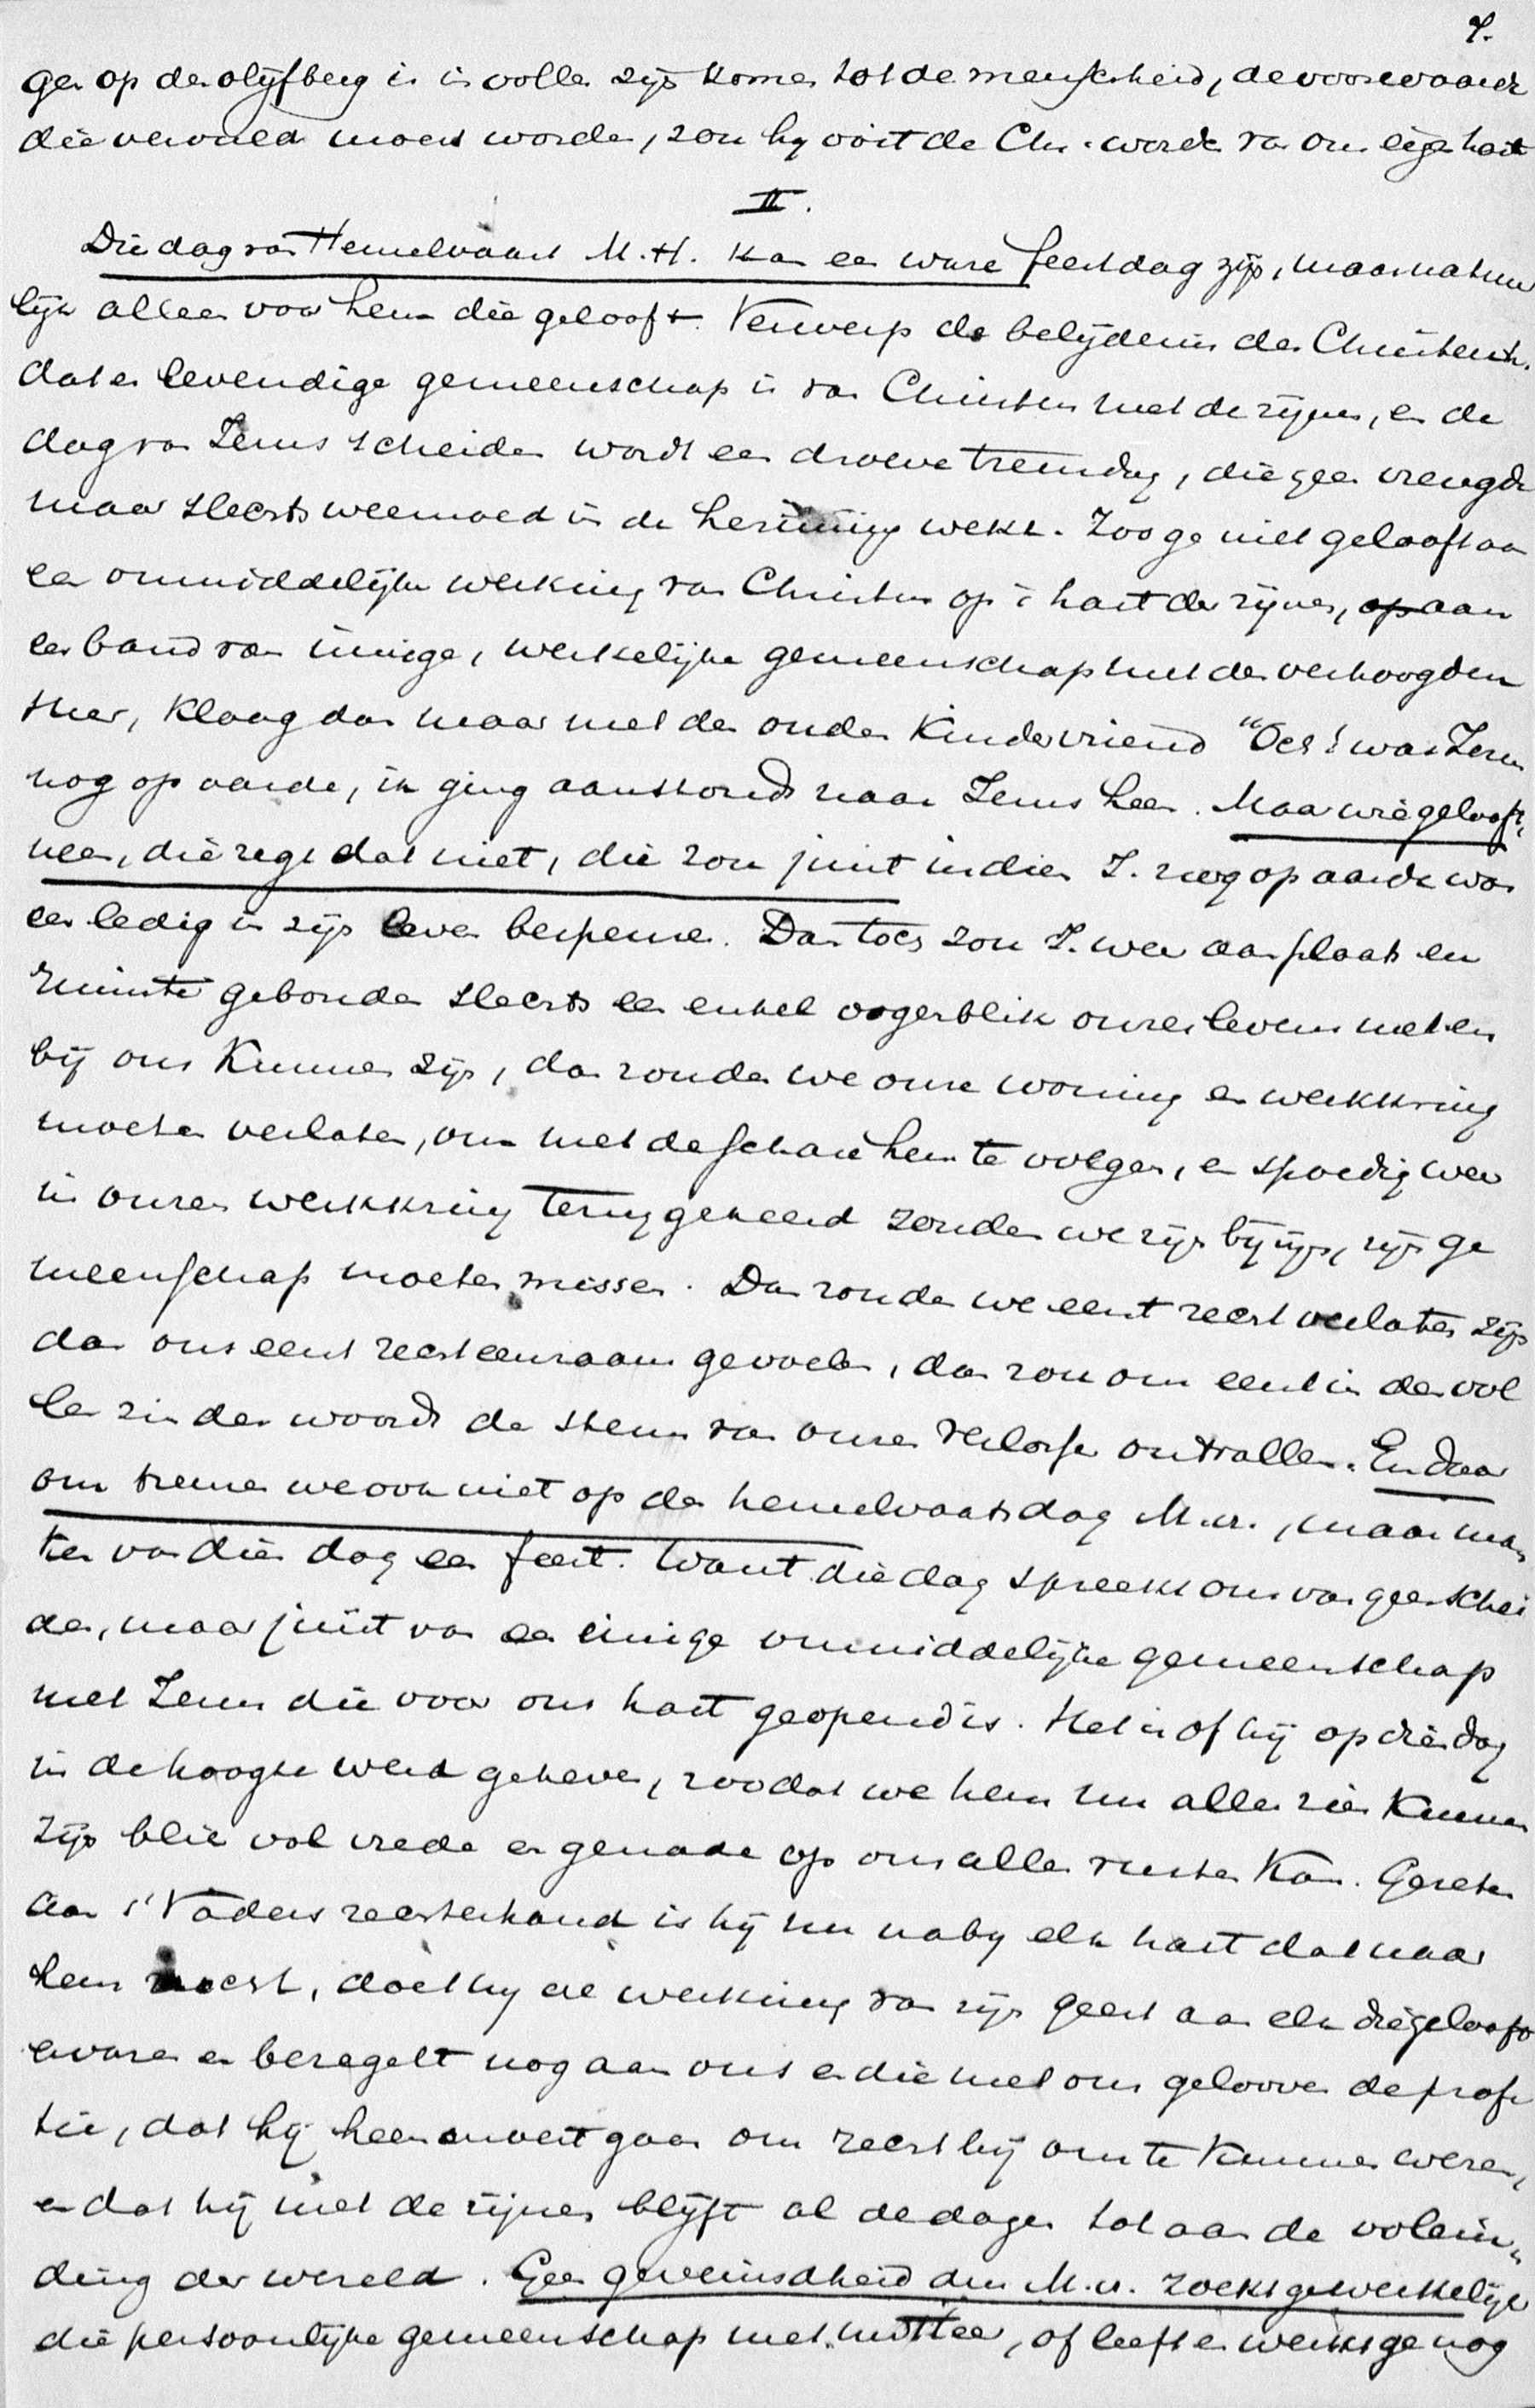 7.
gen op den olijfberg is in volle zijn komen tot de menschheid, de voorwaarde
die vervuld moest worden, zou hij ooit de Chr. worden van ons eigen hart
II.
Die dag van Hemelvaart M.H. kan een ware feestdag zijn, maar natuur
lijk alleen voor hem die gelooft. Verwerp de belijdenis der Christenh.
dat er levendige gemeenschap is van Christus met de zijnen, en de
dag van Jezus scheiden wordt een droeve treurdag, die geen vreugde
maar slechts weemoed in de herinnering wekt. Zoo ge niet gelooft aan
een onmiddelijke werking van Christus op 't hart der zijnen, op aan
een band van innige, werkelijke gemeenschap met den verhoogden
Heer, klaag dan maar met den ouden Kindervriend "Och! was Jezus
nog op aarde, ik ging aanstonds naar Jezus heen. Maar wie gelooft,
neen, die zegt dat niet, die zou juist indien J. nog op aarde was
een ledig in zijn leven bespeuren. Dan toch zou J. weer aan plaats en
ruimte gebonden slechts een enkel oogenblik onzes levens met en
bij ons kunnen zijn, dan zouden we onze woning en werkkring
moeten verlaten, om met de schare hem te volgen, en spoedig weer
in onzen werkkring teruggekeerd zouden we zijn bijzijn, zijn ge
meenschap moeten missen. Dan zouden we eerst recht verlaten zijn
dan ons eerst recht eenzaam gevoelen, dan zou ons eerst in den vol
len zin des woords de steun van onzen Verlosser ontvallen. En daar
om treuren we ook niet op den hemelvaartsdag M.H., maar ma
ken van dien dag een feest. Want die dag spreekt ons van geen schei
den, maar juist van een innige onmiddelijke gemeenschap
met Jezus die voor ons hart geopend is. Het is of hij op dien dag
in de hoogte werd geheven, zoodat we hem nu allen zien kunnen
zijn blik vol vrede en genade op ons allen rusten kan. Gezeten
aan 's Vaders rechterhand is hij nu nabij elk hart dat naar
hem zoekt, doet hij de werking van zijn geest aan elk die gelooft
ervaren en bezegelt nog aan ons en die met ons gelooven de profe
tie, dat hij heen moest gaan om recht bij ons te kunnen wezen,
en dat hij met de zijnen blijft al de dagen tot aan de volein-
ding der wereld. Geen geveinsdheid dus M.H. zoekt ge werkelijk
die persoonlijke gemeenschap met uw Heer, of leeft en werkt ge nog